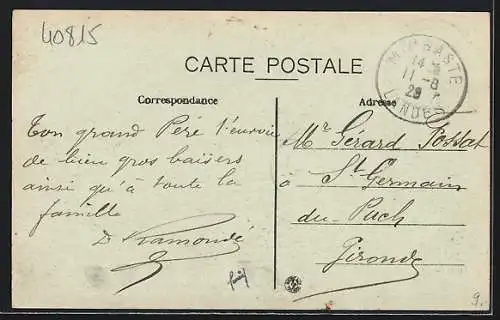 40815
CARTE POSTALE
Correspondance
Adresse
MIMBASTE
14
11 - 8
28
LANDES
Ton grand Père t'envoie
de bien gros baisers
ainsi qu'à toute la
famille
Mr Gérard
à St Germain
du Puch
Gironde
9.